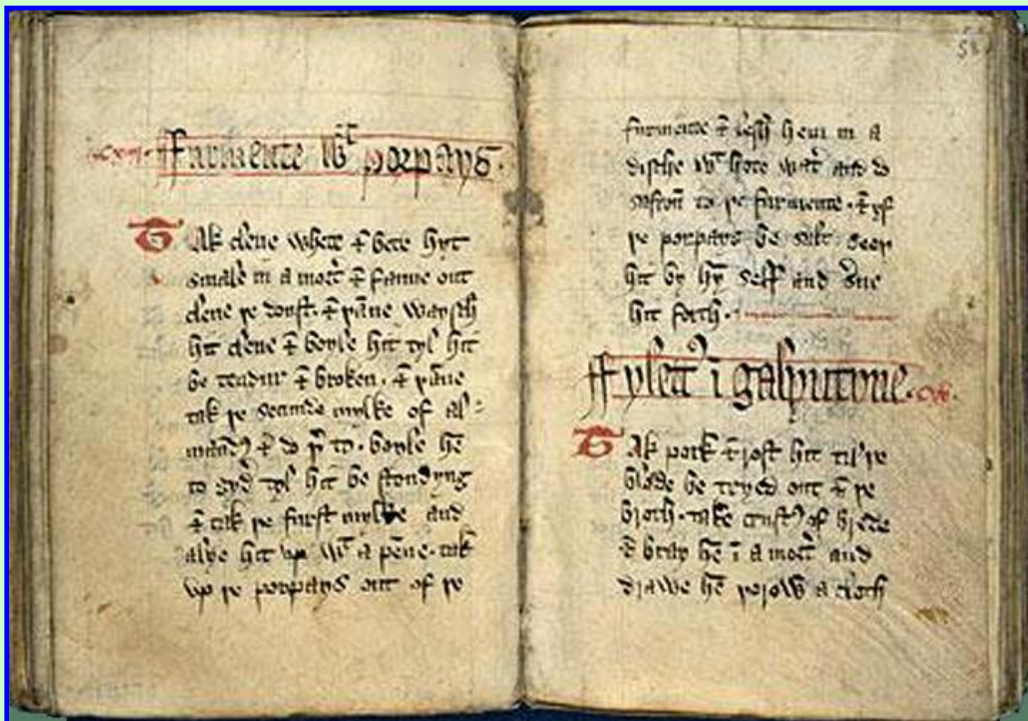 Furmente wt porpays.
Tak clene whete & bete hyt
smale in a & fanne out
clene þe doust. & þane waysch
hit clene & boyle hit tyl hit
be tendur & broken. & þane
tak þe secunde mylke of al=
& do þr to. boyle hē
to gyd tyl hit be stondyng
& tak þe furst mylke and
alye hit up wt a pēne. tak
up þe porpays out of þe
furmente & lesh hem in a
dische wt hote and do
safron to þe furmente. & yf
þe porpays be salt. seeþ
hit by hȳ self and
hit forth.
Fylett ī galyntyne.
Tak pork & rost hit til þe
blode be tryed out & þe
broth. take of brede
& bray hē ī a and
drawe hē þorow a cloth